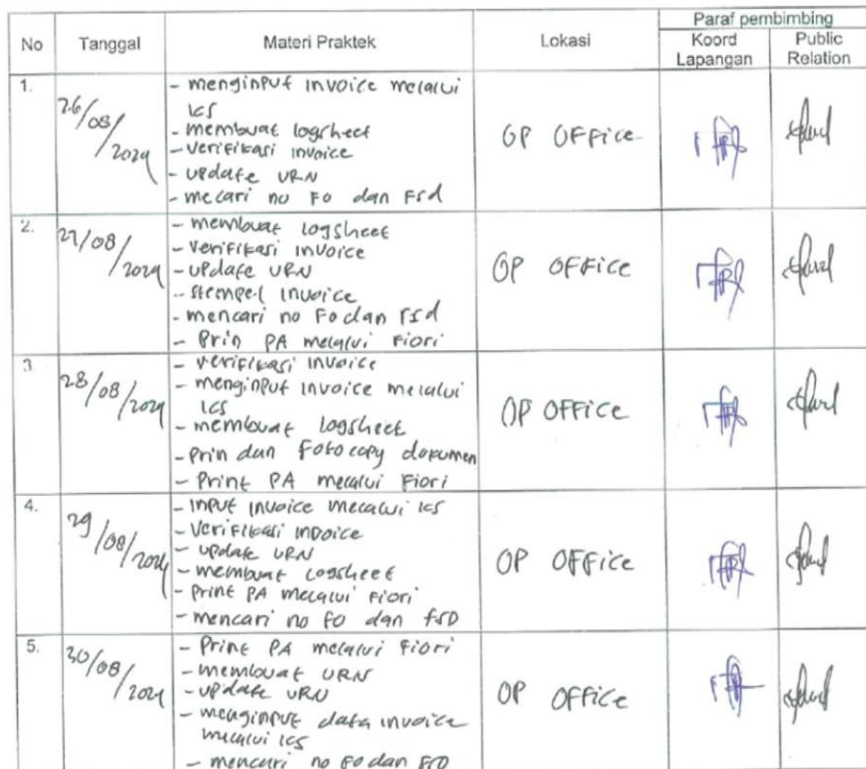 No Tanggal Materi Praktek Lokasi Paraf pembimbing
Koord Lapangan Public Relation
1. 26/08/2024 OP OFFice
- menginput invoice melalui
ICS
- membuat logsheet
- verifikasi invoice
- update URN
- mecari no Fo dan Fsd
2. 27/08/2024 OP OFFice
- membuat logsheet
- verifikasi invoice
- update URN
- stempel invoice
- mencari no Fo dan Fsd
- Prin PA melalui Fiori
3. 28/08/2024 OP OFFice
- verifikasi invoice
- menginput invoice melalui
ICS
- membuat logsheet
- prin dan Fotocopy dokumen
- Print PA melalui Fiori
4. 29/08/2024 OP OFFice
- input invoice melalui ICS
- Verifikasi invoice
- update URN
- membuat logsheet
- print PA melalui Fiori
- mencari no Fo dan FSD
5. 30/08/2024 OP OFFice
- Print PA melalui Fiori
- membuat URN
- update URN
- menginput data invoice
melalui ICS
- mencari no Fo dan FSD